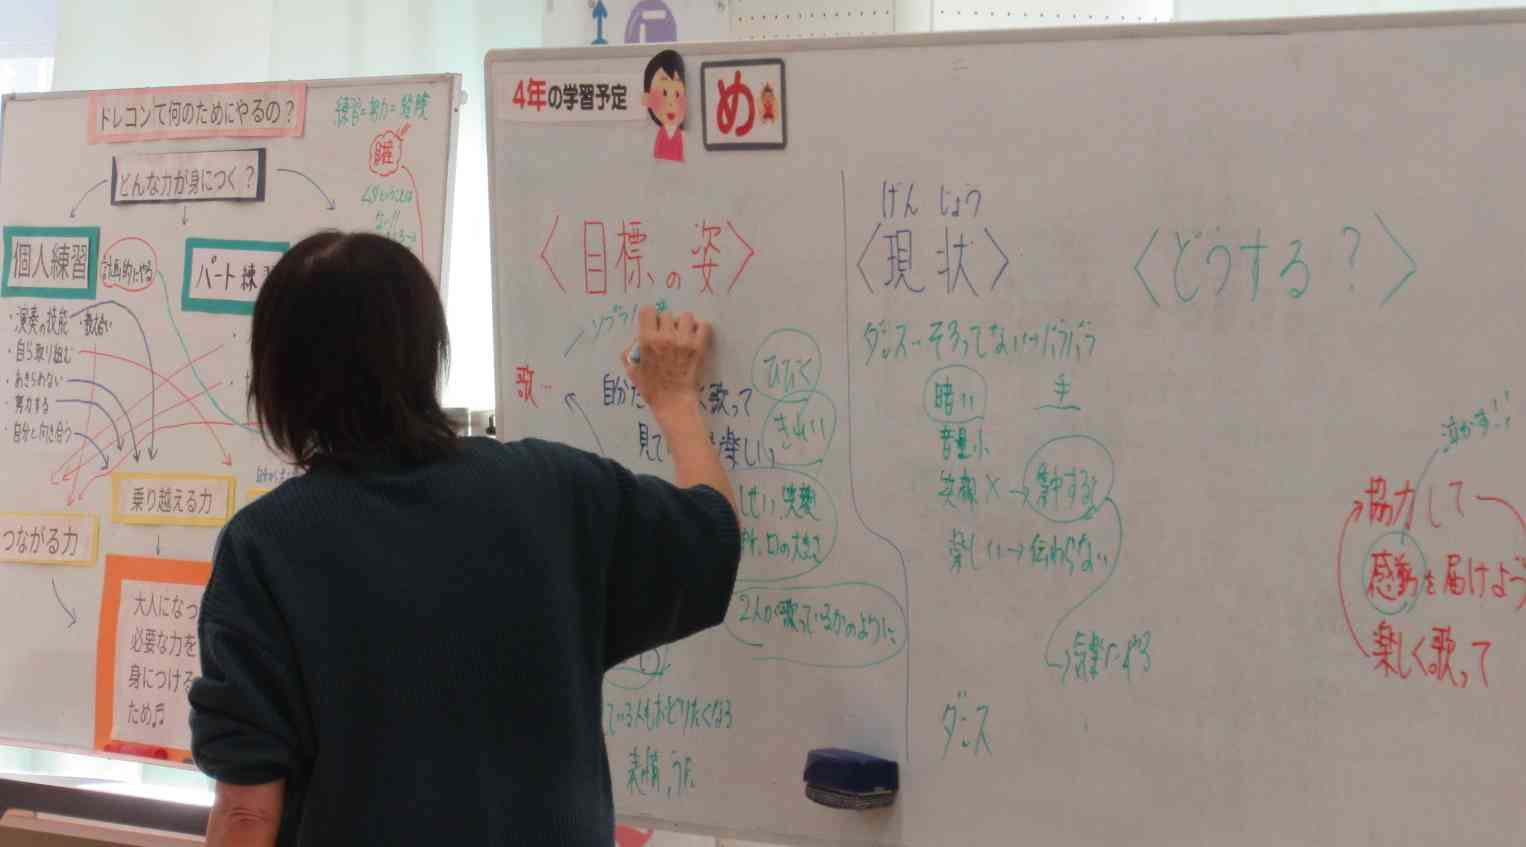 ドレコンて何のためにやるの？
練習=努力=経験
どんな力が身につく？
個人練習
計画的にやる
パート練
・演奏の技能
・自ら取り組む
・あきらめない
・努力する
・自分と向き合う
乗り越える力
つながる力
大人になっ
必要な力を
身につける
ため♬
4年の学習予定
め
〈目標の姿〉
歌…
歌って
ひびく
見て
楽しい
きれい
笑顔
口の大きさ
2人が歌っているかのように
ている人もおどりたくなる
表情
げんじょう
〈現状〉
ダンス…そろってない→バラバラ
暗い
手
音量小
笑顔×→集中すると
楽しい→伝わらない
→気楽にやる
ダンス
〈どうする？〉
泣かす!!
協力して
感動を届けよう
楽しく歌って